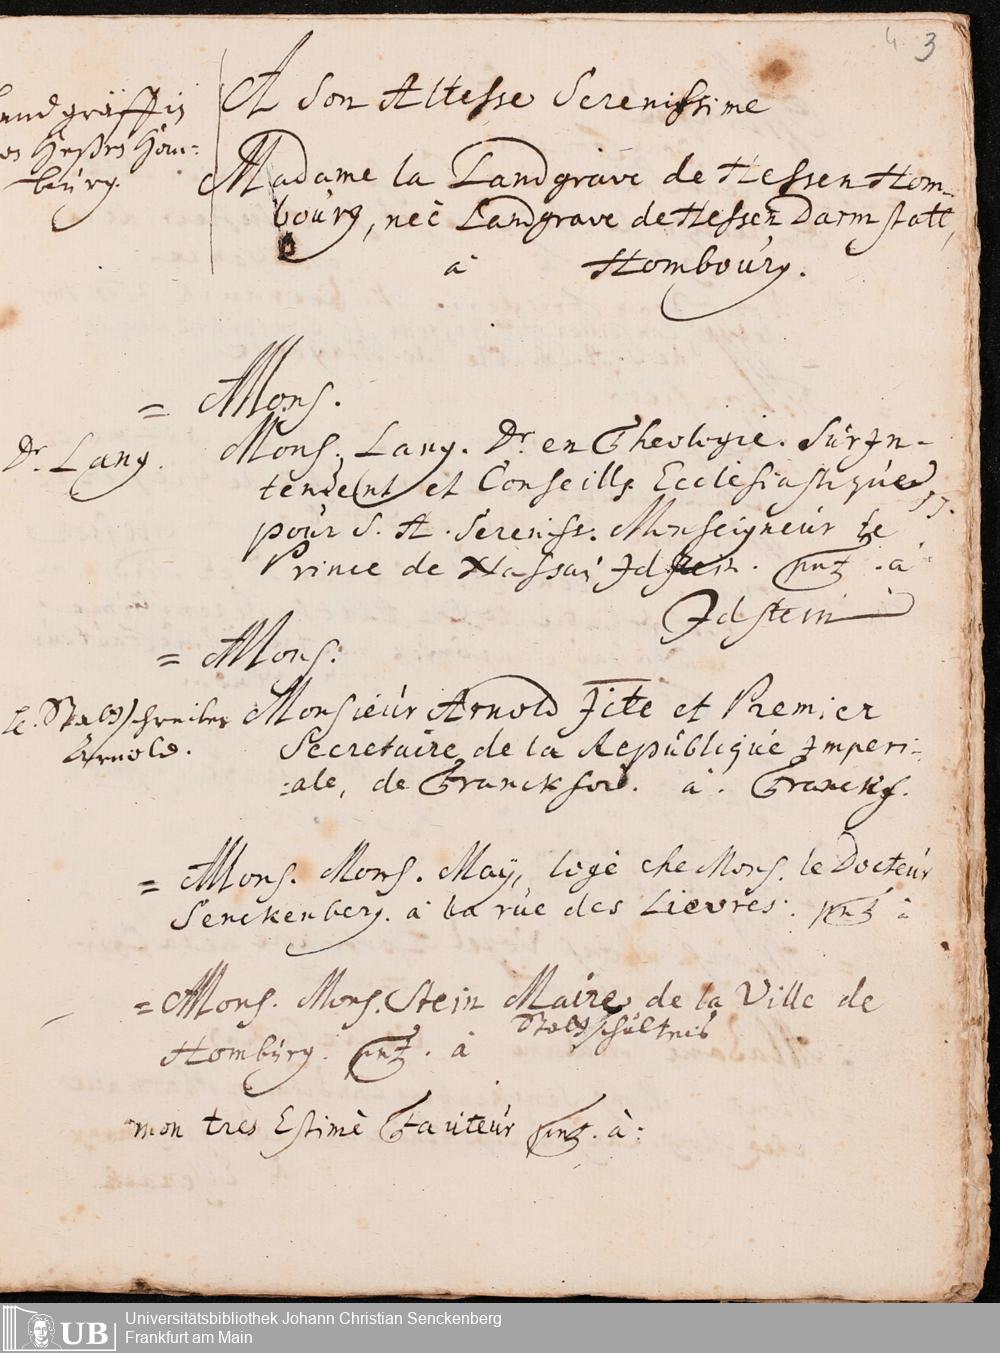 4 3
Landgräffin
von Heßen Hom=
burg.
A Son Altesse Serenissime
Madame la Landgrave de Hessen Hom-
bourg, neè Landgrave de Hessen Darmstatt,
à Hombourg.
= Mons.
Dr. Lang.
Mons. Lang. Dr. en Theologie. Sur In-
tendent et Conseills Ecclesiastiques
pour S. A. Sereniss. Monseigneur le
Prince de Nassau Idstein. pnt. à
Idstein
= Mons:
Stadtschreiber
Arnold.
Monsieur Arnold Iite et Premier
Secretaire de la Republique Imperi-
:ale, de Franckford. à. Franckf.
= Mons. Mons. Maÿ, logè che Mons. le Docteur
Senckenberg. a la rue des Lievres. pnt à
= Mons. Mons. Stein Maire de la Ville de
Stadtschultheis
Homburg. pnt. à
mon tres Estimè Fauteur pnt. à:
UB
Universitätsbibliothek Johann Christian Senckenberg
Frankfurt am Main